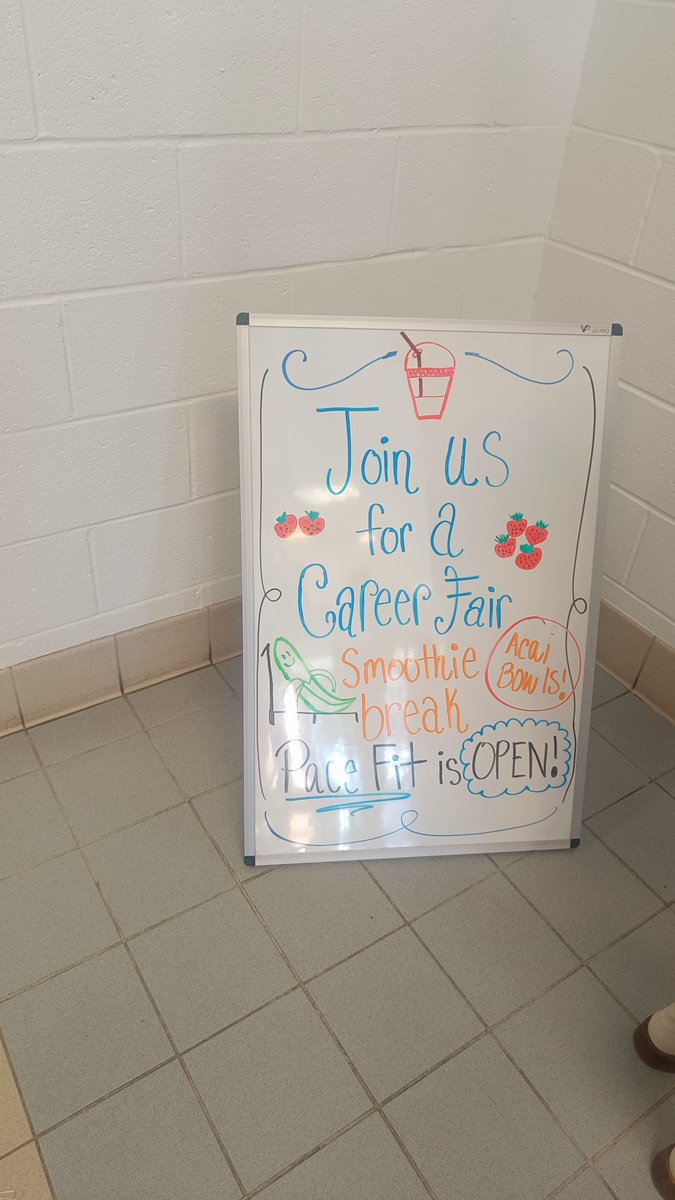 VIZ-PRO
Join us
for a
Career Fair
Smoothie
break
Acai
Bowls!
Pace Fit is OPEN!